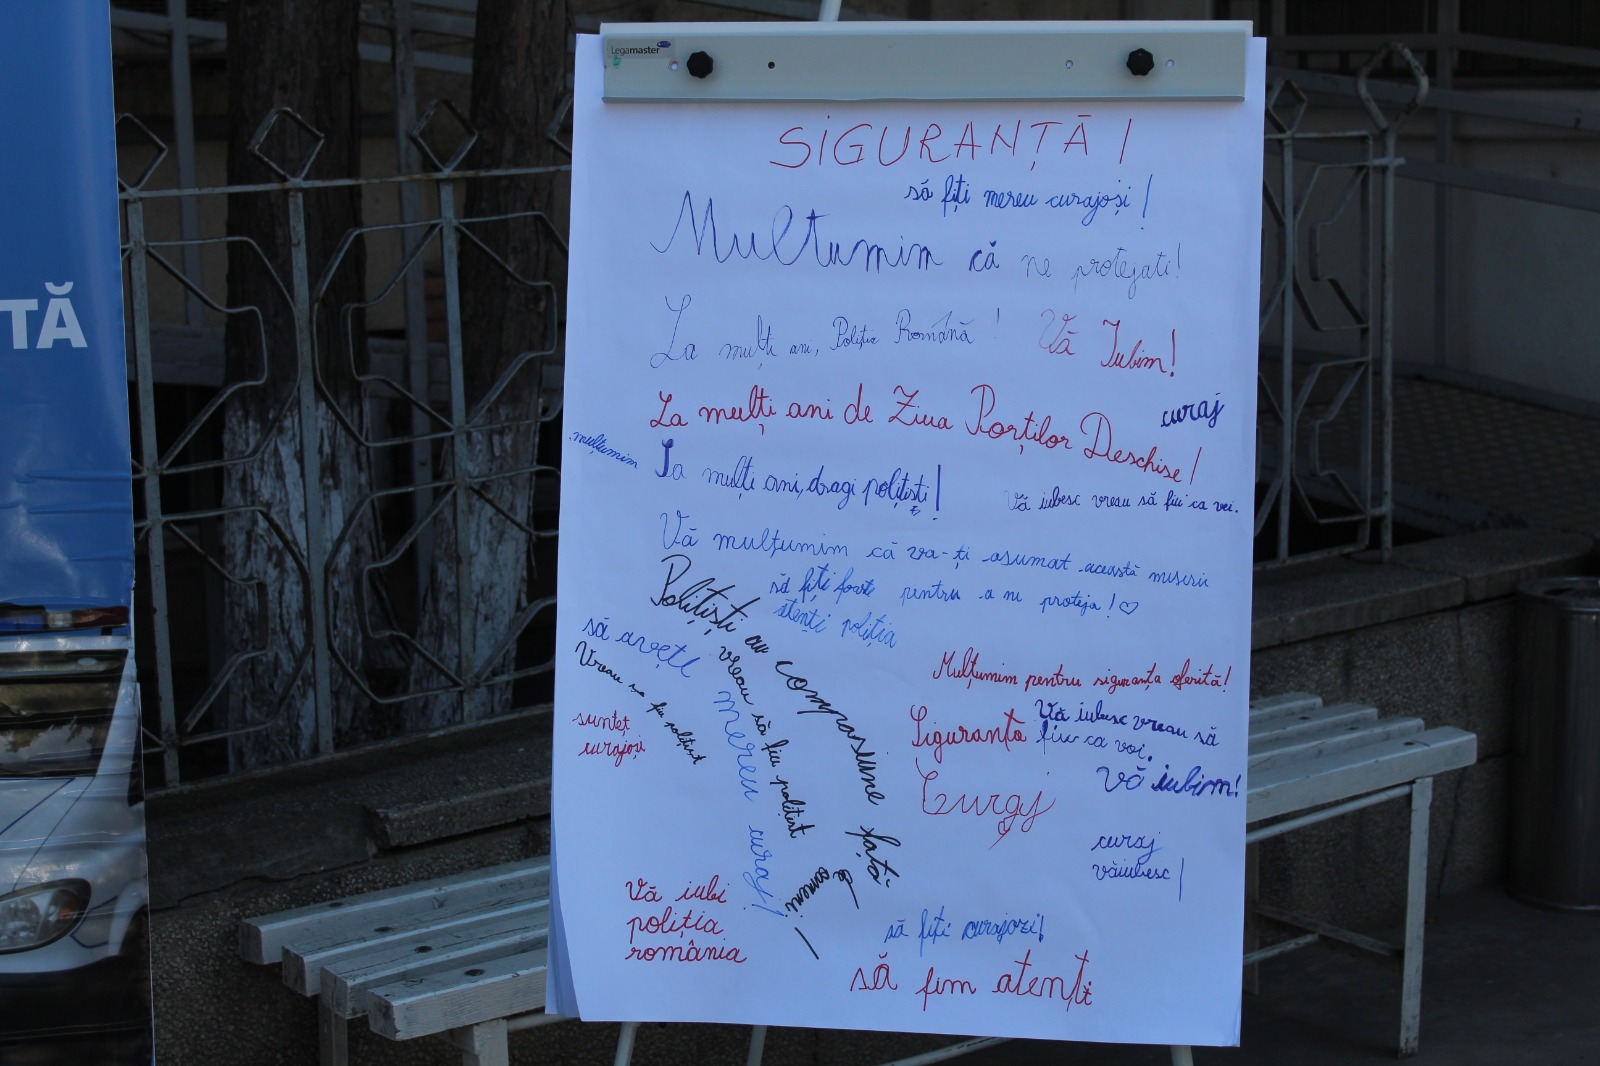 TĂ
Legamaster
SIGURANȚĂ!
să fiți mereu curajoși!
Mulțumim că ne protejati!
La mulți ani, Poliția Română!
Vă Iubim!
La mulți ani de Ziua Porților Deschise!
curaj
mulțumim
La mulți ani, dragi polițiști!
Vă iubesc vreau să fiu ca voi.
Vă mulțumim că va-ți asumat această
pentru a ne proteja! ♡
să fiți foarte
atenți poliția
Polițiști au compasiune față
de
oameni!
să aveți mereu curaj!
Vreau sa fiu polițist
vreau să fiu polițist
sunteț
curajoși
Mulțumim pentru siguranța oferită!
Siguranta
Vă iubesc vreau să
fiu ca voi.
Vă iubim!
Curaj
curaj
văiubesc!
Vă iubi
poliția
românia
să fiți curajozi!
să fim atenți